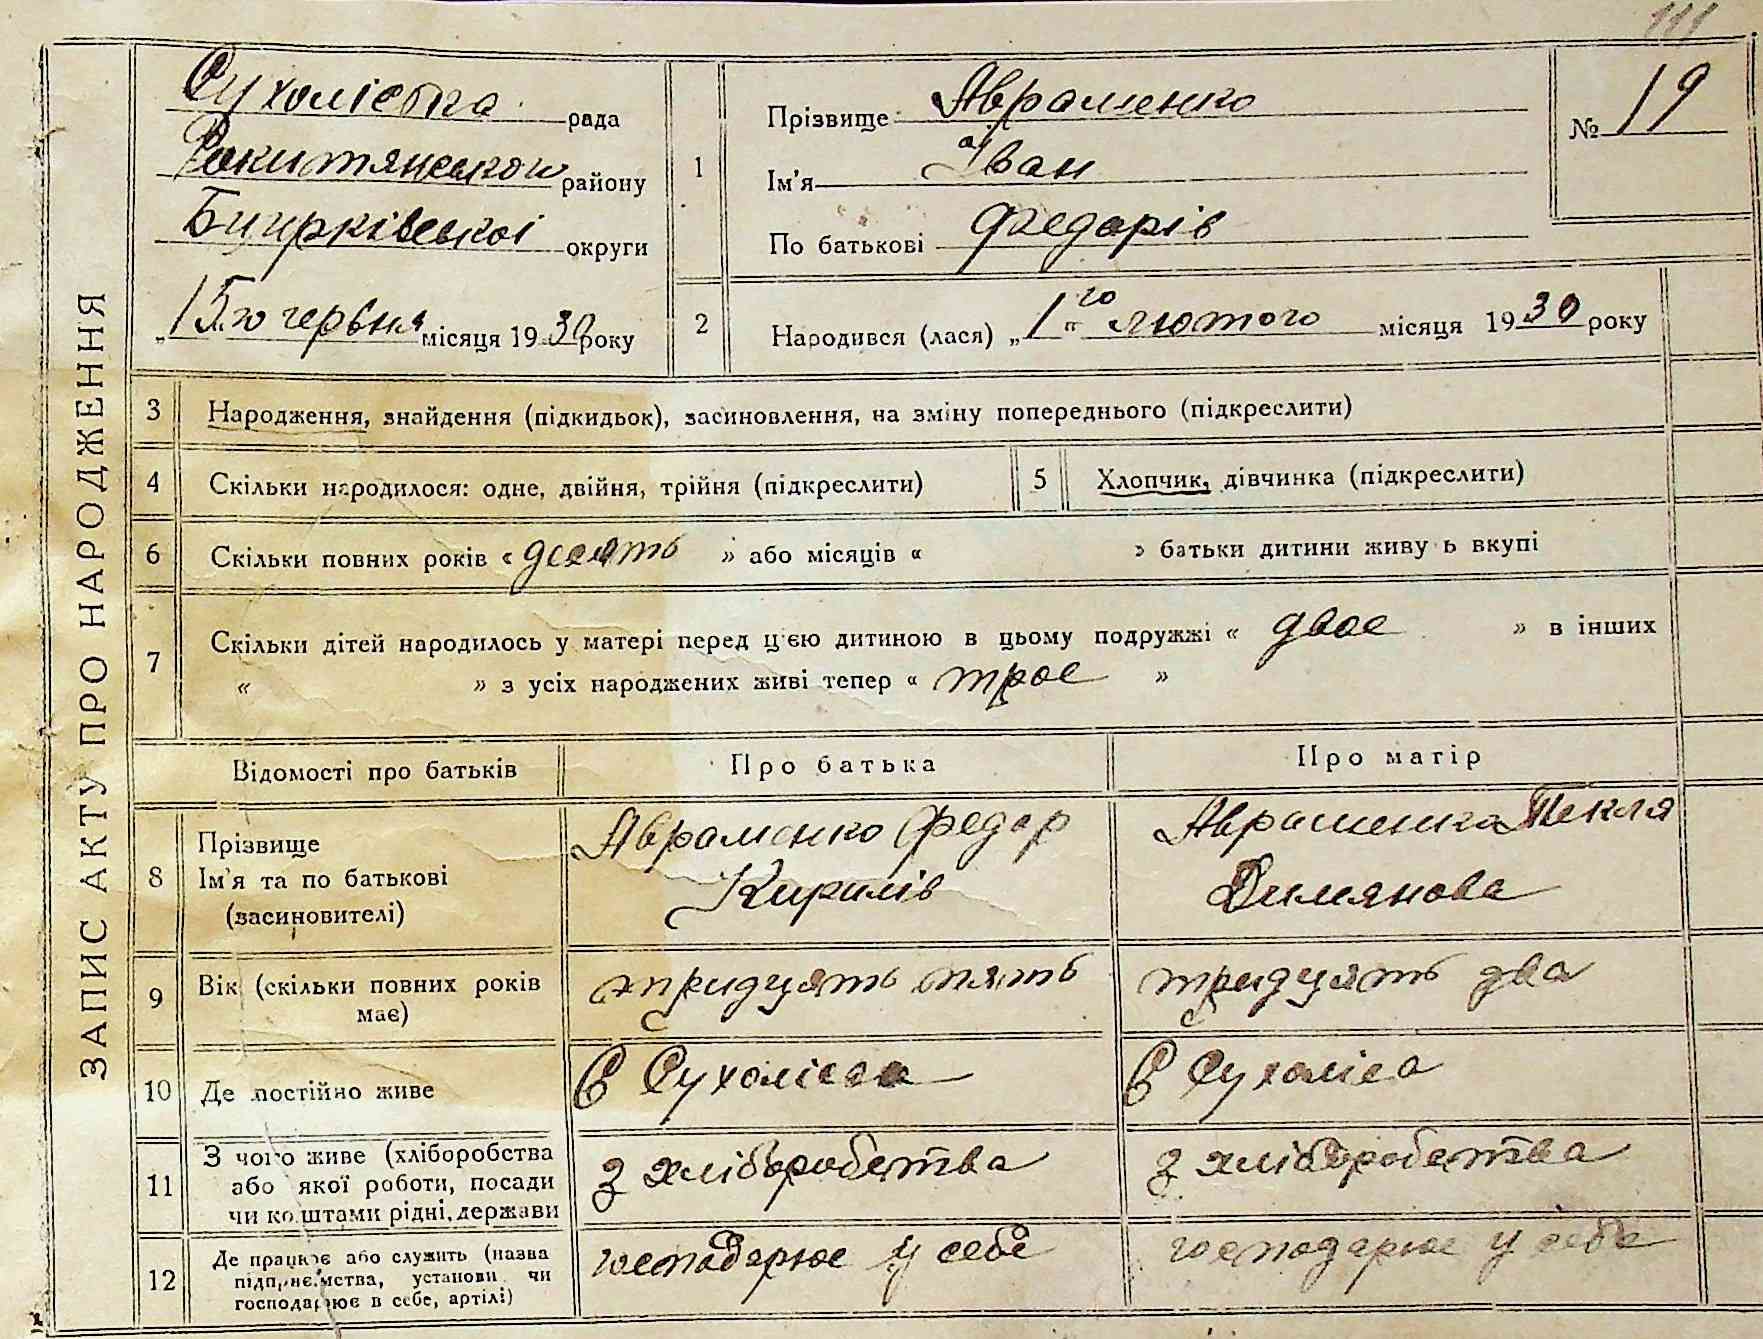 111
ЗАПИС АКТУ ПРО НАРОДЖЕННЯ
Сухоліська рада
Рокитянського району
Білоцерківської округи
„15го червня місяця 1930 року
1
Прізвище Авраменко
Ім'я Іван
По батькові Федорів
№ 19
2
Народився (лася) „1го" лютого місяця 1930 року
3 Народження, знайдення (підкидьок), засиновлення, на зміну попереднього (підкреслити)
4 Скільки народилося: одне, двійня, трійня (підкреслити)
5 Хлопчик, дівчинка (підкреслити)
6 Скільки повних років « десять » або місяців « » батьки дитини живуть вкупі
7 Скільки дітей народилось у матері перед цією дитиною в цьому подружжі « двоє » в інших
« » з усіх народжених живі тепер « троє »
Відомості про батьків Про батька Про матір
8
Прізвище
Ім'я та по батькові
(засиновителі)
Авраменко Федор
Кирилів
Авраменко Текля
Димянова
9
Вік (скільки повних років
має)
тридцять пять
тридцять два
10 Де постійно живе
в Сухоліса
в Сухоліса
11
З чого живе (хліборобства
або якої роботи, посади
чи коштами рідні, держави
з хліборобства
з хліборобства
12
Де працює або служить (назва
підприємства, установи чи
господарює в себе, артілі)
господарює у себе
господарює у себе